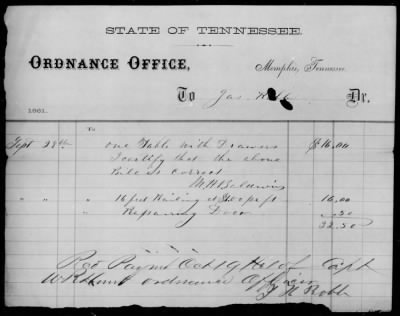 STATE OF TENNESSEE.
ORDNANCE OFFICE,
Memphis, Tennessee
To Jas. Dr.
1861.
To
Sept 28th one Table with Drawers $16.00
I certify that the above
Bill is correct
M H Baldwin
" " " 16 feet Railing at 16.00
" " " Repairing Door .50
32.50
Rec Paymt Oct 19 1861 of Capt
W R Hunt ordnance Officer
Robb